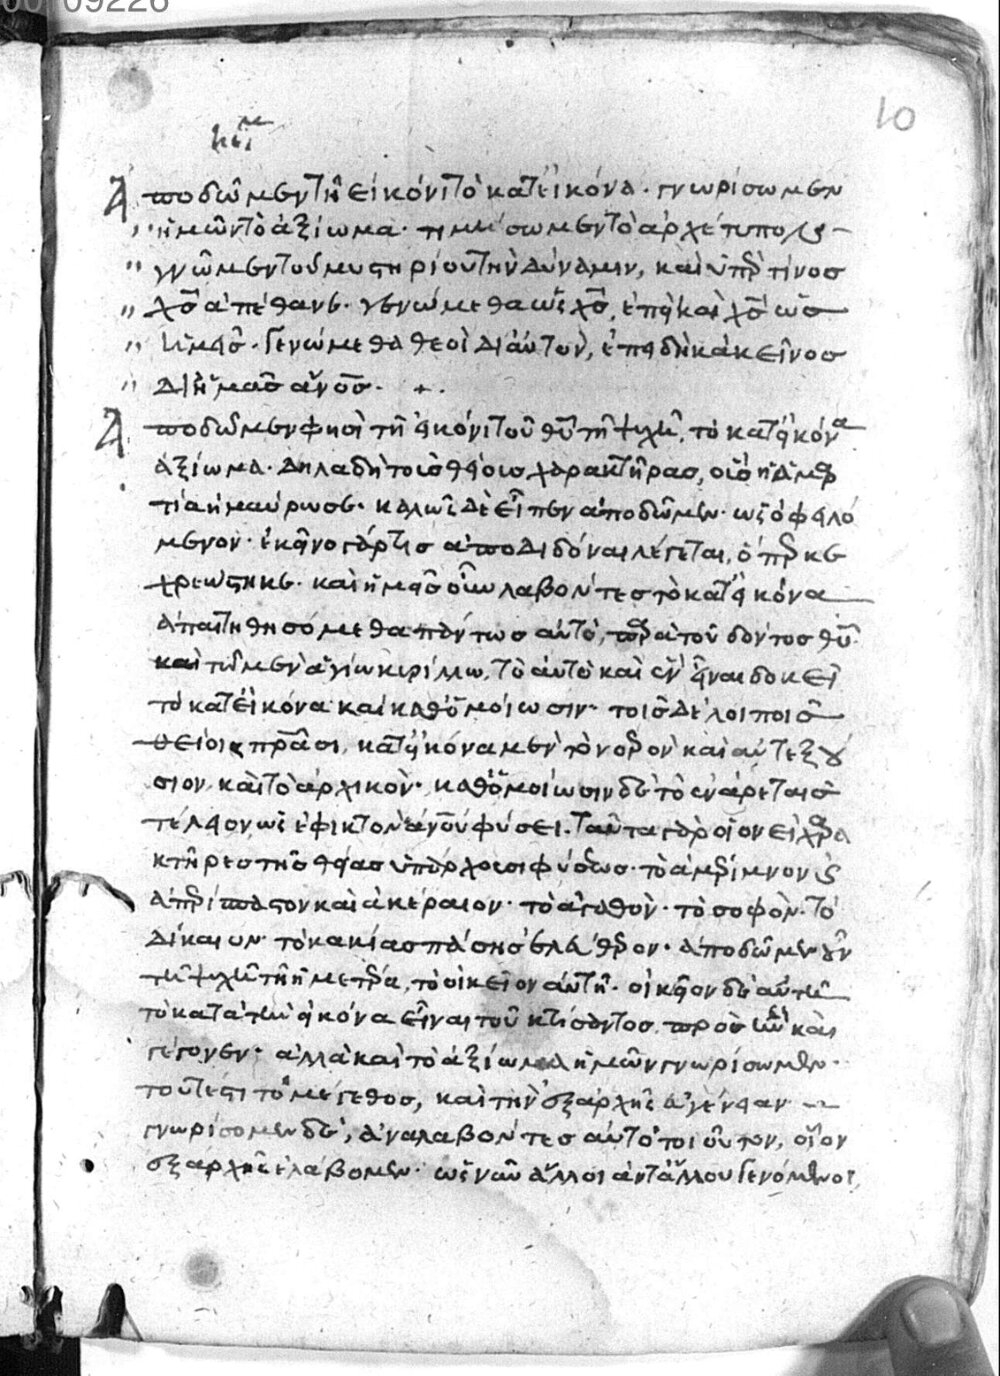 00109226
10
κεί̅μ
Ἀποδῶμεν τῆ εἰκόνι τὸ κατεἰκόνα· γνωρίσωμεν
ἡμῶν τὸ ἀξίωμα· τιμήσωμεν τὸ ἀρχέτυπον
γνῶμεν τοῦ μυστηρίου τὴν δύναμιν, καὶ ὑπὲρ τίνος
χς ἀπέθανε· γενώμεθα ὡς χς, ἐπεὶ καὶ χς ὡς
ἡμεῖς· γενώμεθα θεοὶ δι αὐτὸν, ἐπειδὴ κἀκεῖνος
δι ἡμᾶς ἄνος·
Ἀποδῶμεν φησὶ τῆ εἰκόνι τοῦ θυ τῆ ψυχῆ, τὸ κατεἰκόνα
ἀξίωμα· δηλαδὴ τοὺς θείους χαρακτῆρας, οὓς ἡ ἁμαρ
τία ἠμαύρωσε· καλῶς δὲ εἶπεν ἀποδῶμεν· ὡς ὀφειλό
μενον· ἐκεῖνο γάρ τις ἀποδιδόναι λέγεται, ὅπερ κε
χρεώστηκε· καὶ ἡμεῖς οὖν λαβόντες τὸ κατεἰκόνα
ἀπαιτηθησόμεθα πάντως αὐτὸ, παρὰ τοῦ δόντος θυ·
καὶ τῶ μὲν ἁγίω κυρίλλω, τὸ αὐτὸ καὶ ἓν εἶναι δοκεῖ
τὸ κατεἰκόνα καὶ καθομοίωσιν· τοῖς δὲ λοιποῖς
θείοις πράσι, κατεἰκόνα μὲν τὸ νοερὸν καὶ αὐτεξού
σιον καὶ τὸ ἀρχικὸν· καθομοίωσιν δὲ τὸ ἐν ἀρεταῖς
τέλειον ὡς ἐφικτὸν ἀνου φύσει. ταῦτα γὰρ οἷον εἰ χαρα
κτῆρες τῆς θείας ὑπάρχουσι φύσεως· τὸ ἀμέριμνον καὶ
ἀπερίσπαστον καὶ ἀκέραιον· τὸ ἀγαθὸν· τὸ σοφὸν· τὸ
δίκαιον· τὸ κακίας πάσης ἐλεύθερον· ἀποδῶμεν οὖν
τῆ ψυχῆ τῆ ἡμετέρα, τὸ οἰκεῖον αὐτῆ· οἰκεῖον δὲ αὐτῆ
τὸ κατὰ τὴν εἰκόνα εἶναι τοῦ κτίσαντος, πρὸς ἣν καὶ
γέγονεν· ἀλλὰ καὶ τὸ ἀξίωμα ἡμῶν γνωρίσωμεν·
τοῦτέστι τὸ μέγεθος, καὶ τὴν ἐξαρχῆς εὐγένειαν
γνωρίσομεν δὲ, ἀναλαβόντες αὐτὸ τοιοῦτον, οἷον
ἐξαρχῆς ἐλάβομεν· ὡς νῦν ἄλλοι ἀντάλλου γενόμενοι,